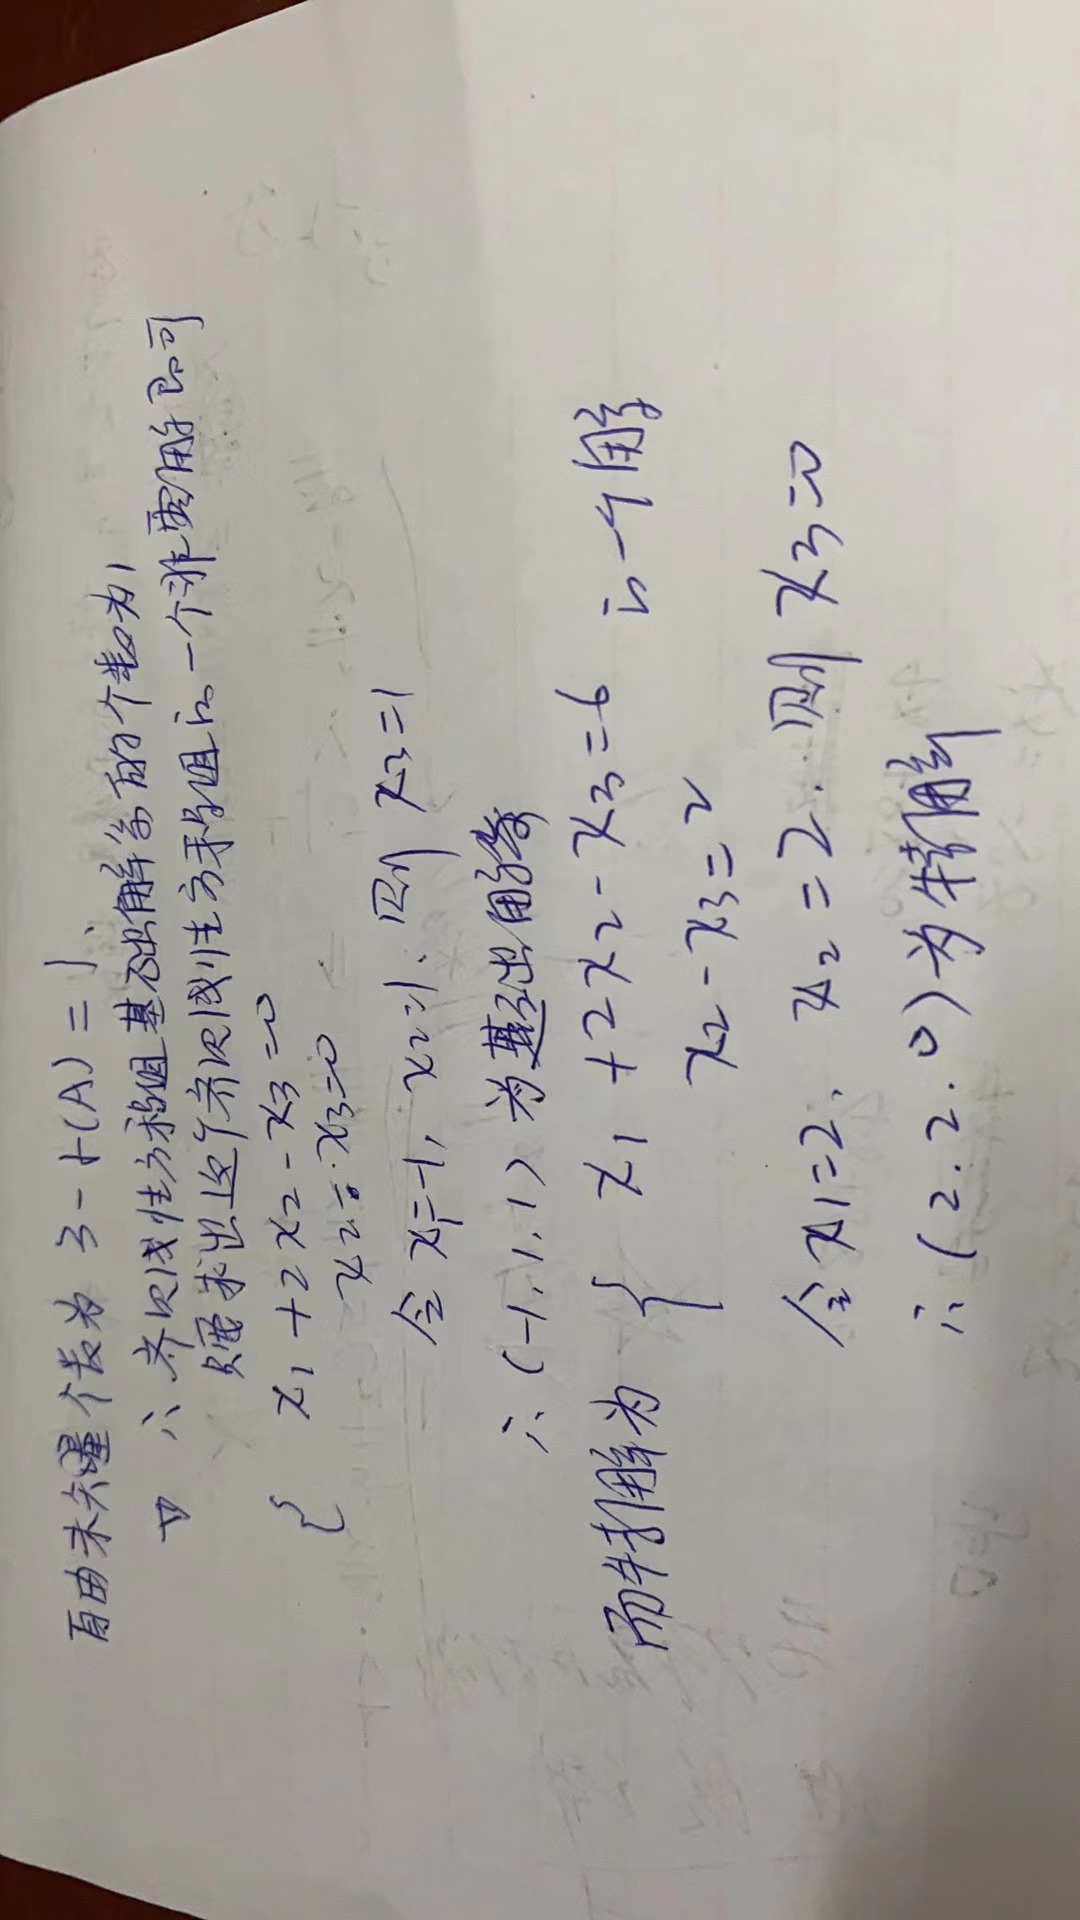 自由未知量个数为 3-r(A)=1
∴ 齐次线性方程组基础解系的个数为1
只需求出这个齐次线性方程组的一个非零解即可
{ x1+2x2-x3=0
x2-x3=0
令x1=-1, x2=1, 则 x3=1
∴ (-1,1,1) 为基础解系
而特解为 { x1+2x2-x3=6 的一个解
x2-x3=2
令x1=2, x2=2. 则 x3=0
∴ (2.2.0)为特解